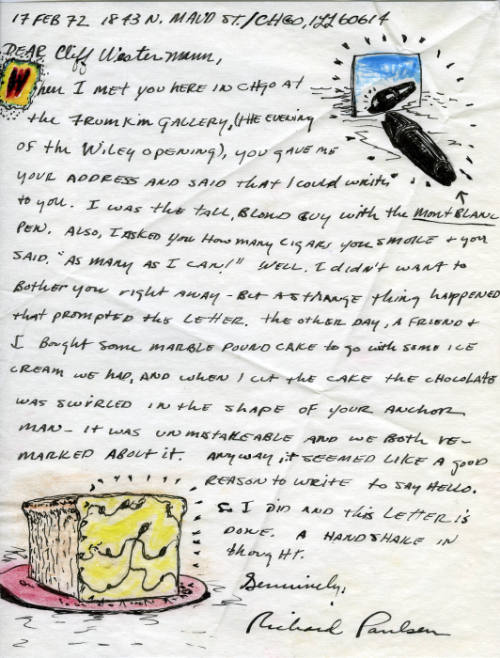 17 FEB 72 1843 N. MAUD ST./CHGO, ILL 60614
DEAR Cliff Westermann,
When I MET YOU HERE IN CHGO AT
the FRUMKIN GALLERY, (THE EVENING
OF the WILEY OPENING), YOU GAVE ME
YOUR ADDRESS AND SAID that I could write
to you. I WAS the tALL, BLOND GUY with the MONT BLANC
PEN. ALSO, I ASKED YOU HOW MANY CIGARS YOU SMOKE + you
SAID, "AS MANY AS I CAN!" WELL. I didn't WANT to
BOTHER you RIGHT AWAY - BUT A STRANGE thing HAPPENED
that PROMPTED this LETTER. the OTHER DAY, A FRIEND +
I BOUGHT SOME MARBLE POUND CAKE to go with SOME ICE
CREAM WE HAD, AND WHEN I CUT the CAKE the CHOCOLATE
WAS SWIRLED IN the SHAPE OF YOUR ANCHOR
MAN - IT WAS UNMISTAKEABLE AND WE BOTH RE-
MARKED ABOUT IT. ANYWAY, it SEEMED LIKE A good
REASON to WRITE to SAY HELLO.
So I DID AND this LETTER IS
DONE. A HANDSHAKE IN
thought.
Genuinely,
Richard Paulsen